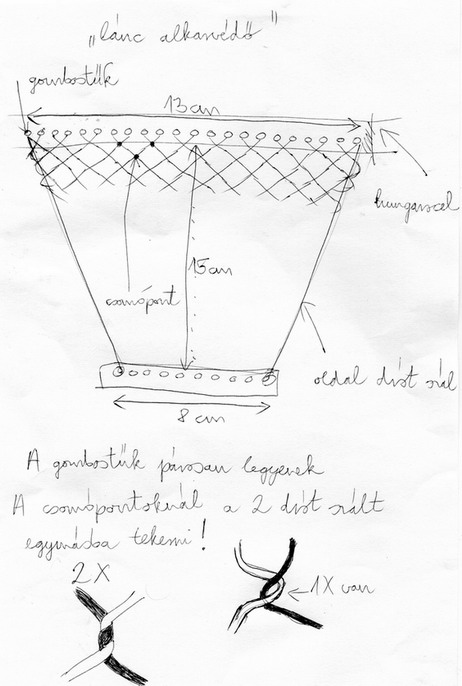 „lánc alkarvédő"
gombostűk
13 cm
hungarocel
15 cm
csomópont
oldal drót szál
8 cm
A gombostűk párosan legyenek
A csomópontoknál a 2 drót szált
egymásba tekerni!
2X
1X van